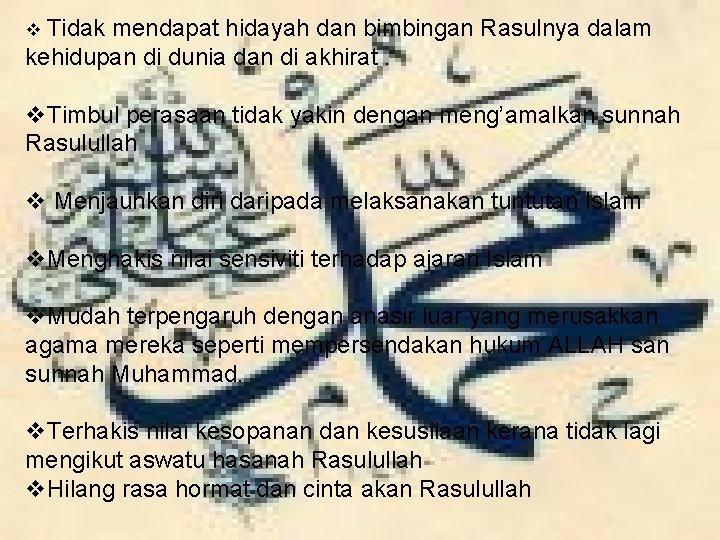 ❖ Tidak mendapat hidayah dan bimbingan Rasulnya dalam
kehidupan di dunia dan di akhirat .
❖Timbul perasaan tidak yakin dengan meng’amalkan sunnah
Rasulullah
❖ Menjauhkan diri daripada melaksanakan tuntutan Islam
❖Menghakis nilai sensiviti terhadap ajaran Islam
❖Mudah terpengaruh dengan anasir luar yang merusakkan
agama mereka seperti mempersendakan hukum ALLAH san
sunnah Muhammad.
❖Terhakis nilai kesopanan dan kesusilaan kerana tidak lagi
mengikut aswatu hasanah Rasulullah
❖Hilang rasa hormat dan cinta akan Rasulullah